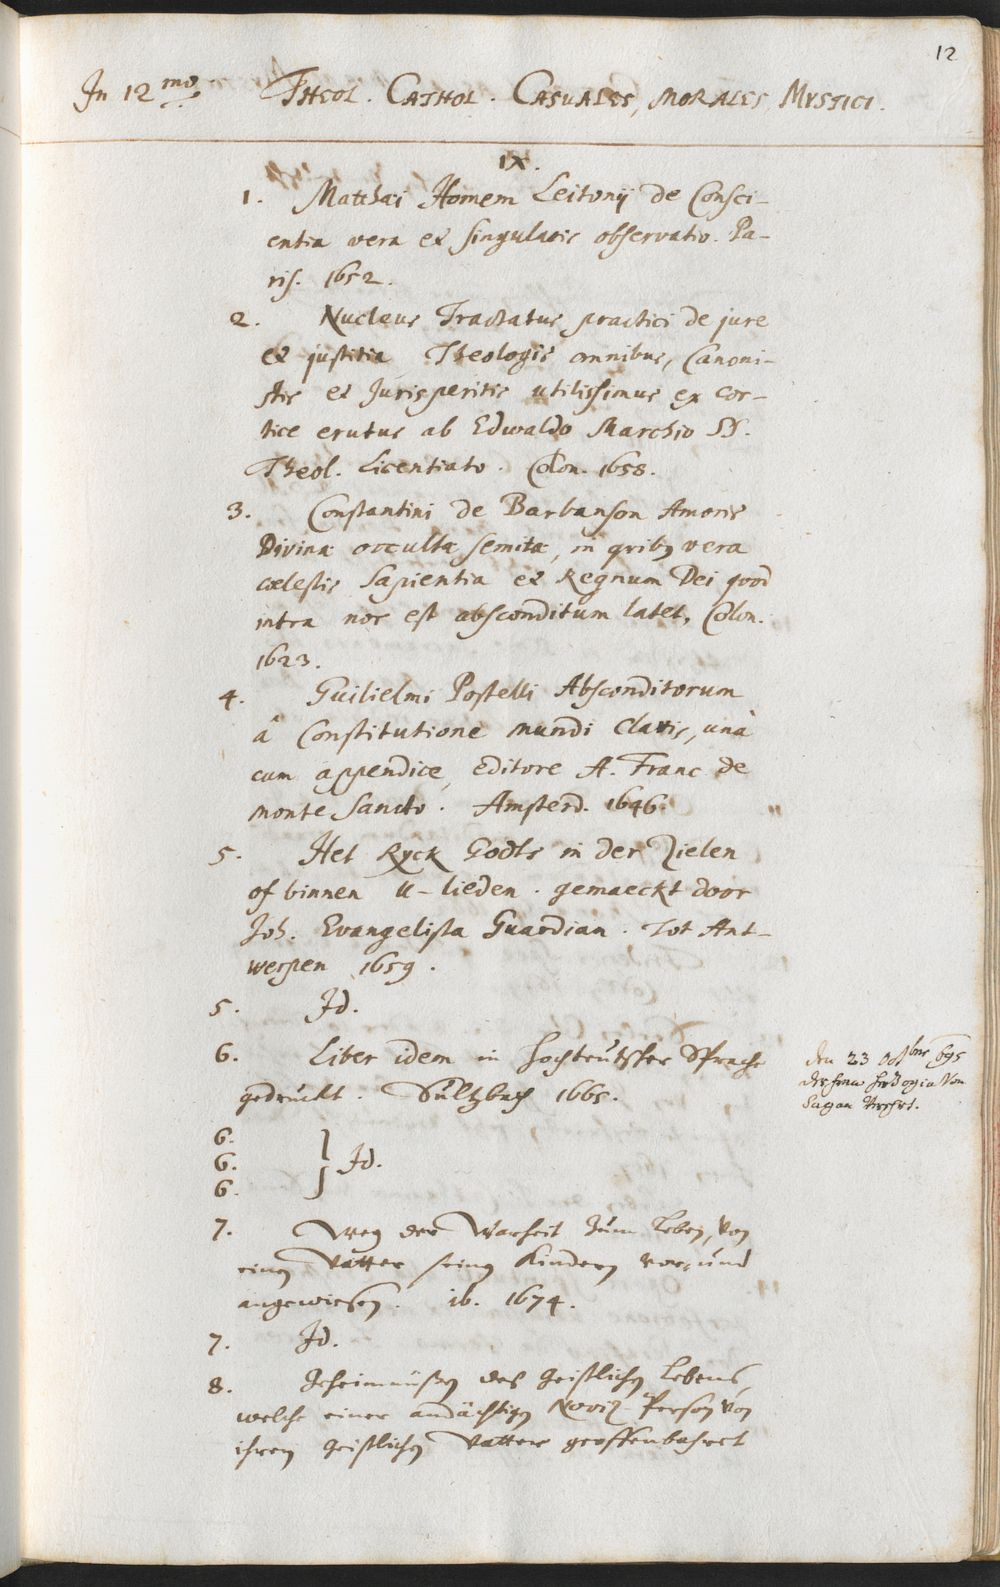 12
In 12mo. THEOL. CATHOL. CASUALES, MORALES, MYSTICI.
IX.
1. Matthæi Homem Leitonij de Consci-
entia vera et singularis observatio. Pa-
ris. 1652.
2. Nucleus Tractatus practici de jure
et justitia Theologis omnibus, Canoni-
stis et Jurisperitis utilissimus ex cor-
tice erutus ab Edwaldo Marchio SS.
Theol. Licentiato. Colon. 1658.
3. Constantini de Barbanson Amoris
Divinæ occultæ semitæ, in quibus vera
cœlestis Sapientia et Regnum Dei quod
intra nos est absconditum latet, Colon.
1623.
4. Guilielmi Postelli Absconditorum
â Constitutione mundi Clavis, unà
cum appendice, editore A. Franc de
monte Sancto. Amsterd. 1646.
5. Het Ryck Godts in der Zielen
of binnen U-lieden. gemaeckt door
Joh. Evangelista Guardian. Tot Ant-
werpen 1659.
5. Id.
6. Liber idem in hochteutscher Sprache
gedruckt. Sultzbach 1665.
den 23 Octbre 695
der Hertzogin von
Sagan verehrt.
6.
6. } Id.
6.
7. Weg der Warheit zum Leben, von
einem Vatter seinen Kindern vor, und
angewiesen. ib. 1674.
7. Id.
8. Geheimnüßen des geistlichen Lebens,
welche einer andächtigen Noviz Person von
ihrem geistlichen Vatter geoffenbahret